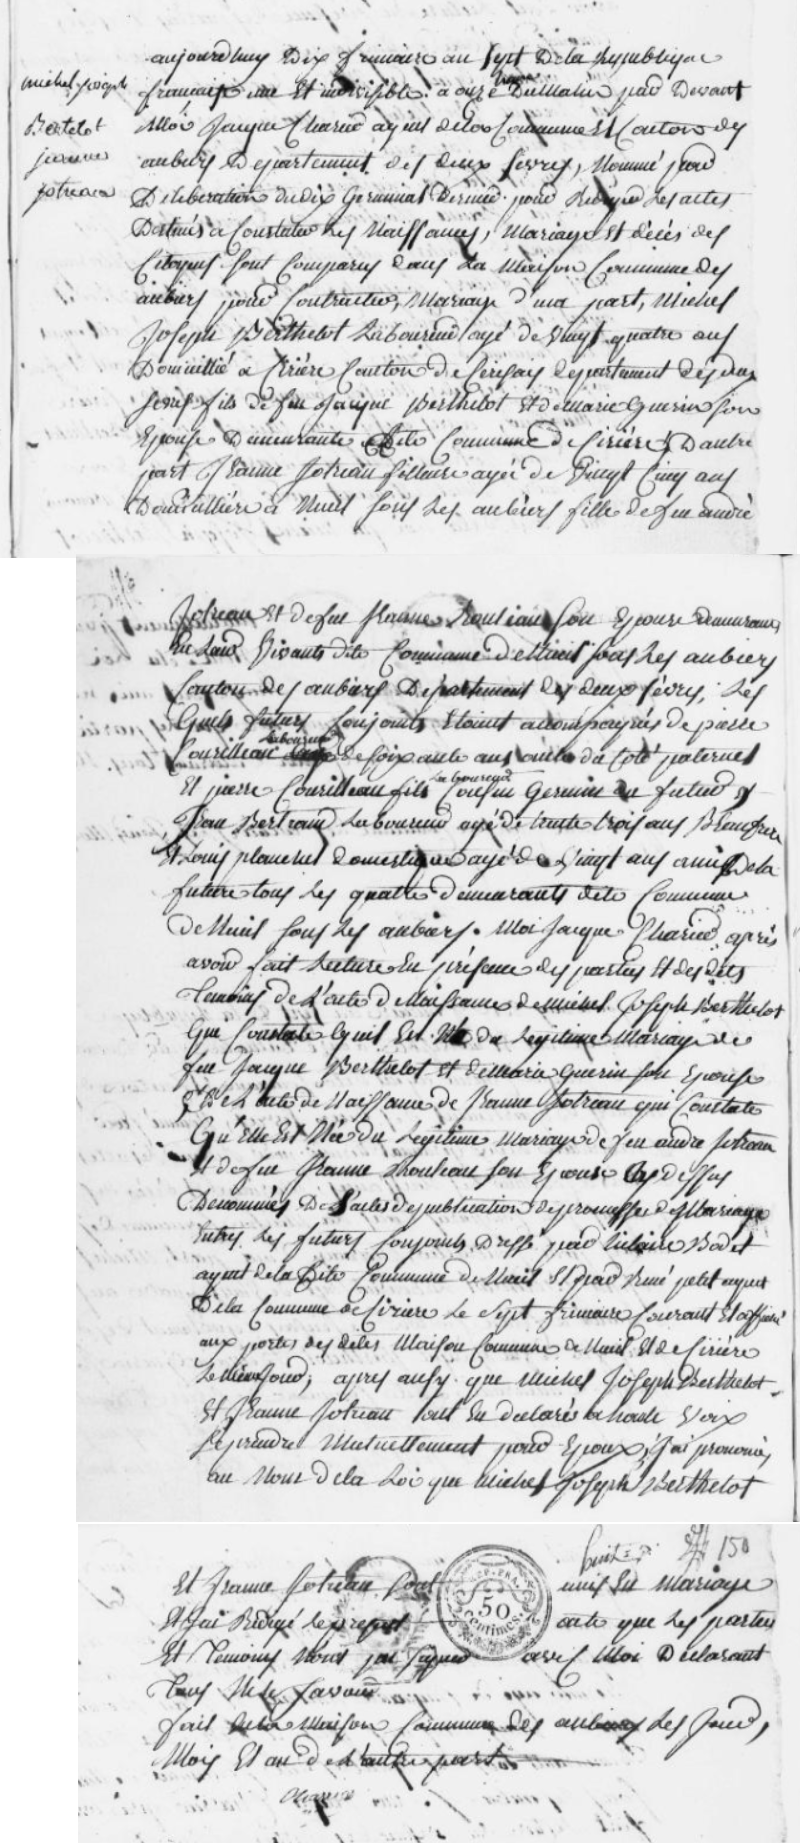 michel joseph
Bertelot
jeanne
jotreau
aujourdhuy Dix frimaire an sept De la Republique
francaise une Et indivisible à onze heure Du Matin par Devant
Moi Jacque Charrié agent de la Commune Et Canton des
aubiers Departement des deux sevres, Nommé par
Deliberation du dix Germinal Dernier pour Rediger Les actes
Destinés a Constater Les Naissances, Mariage Et décès des
Citoyens sont Comparus dans La Maison Commune des
aubiers pour Contracter Mariage d'une part, Michel
Joseph Berthelot Laboureur agé de vingt quatre ans
Domicillié a Cirière Canton de Cerisay Departement des deux
sevres fils de feu Jacque Berthelot Et de Marie Guerin son
Epouse Demeurante dite Commune de Cirière, D'autre
part Jeanne Jotreau filleure agée de Vingt Cinq ans
Domicilliére à Nueil sous Les aubiers fille de feu andré
Jotreau Et de feu Jeanne Rouleau son Epouse demeurants
En Leur Vivants dite Commune de Nueil sous Les aubiers
Canton des aubiers Departement des deux sévres, Les
Quels futurs Conjoints Etoint accompagnés de pierre
Courilleau Laboureur agé de soixante ans oncle du Coté paternel
Et pierre Courilleau fils Laboureur Cousin Germain du futur
Jean Bertrand Laboureur agé de trente trois ans Beaufrere
Et Louis domestique agé de Vingt ans amis De la
future tous Les quatre demeurants dite Commune
de Nueil sous Les aubiers. Moi Jacque Charrié après
avoir fait Lecture En présence des parties Et des dits
Temoins de L'acte de Naissance de Michel Joseph Berthelot
Qui Constate Quil Est Né du Legitime Mariage de
feu Jacque Berthelot Et de Marie Guerin son Epouse
De L'acte de Naissance de Jeanne Jotreau qui Constate
Qu'Elle Est Née du Legitime Mariage de feu andre Jotreau
Et de feu Jeanne Rouleau son Epouse Cy dessus
Denommés De L'actes de publication de promesse de Mariage
Entres Les futurs Conjoints Dressé par hilaire Bodet
agent de la Dite Commune de Nueil Et par René petit agent
De la Commune de Cirière Le Sept frimaire Courant Et affiché
aux portes des dites Maison Commune de Nueil Et de Cirière
Le même jour; apres ausy que Michel Joseph Berthelot
Et Jeanne Jotreau ont Eu declaré a haute Voix
se prendre Mutuellement pour Epoux, j'ai prononcé
au Nom de la Loi que Michel Joseph Berthelot
huit 150
Et Jeanne Jotreau sont unis En Mariage
REP. FRA.
50
centimes.
Et J'ai Redigé Le present acte que Les parties
Et Temoins Nont pas signer avec Moi Declarant
tous Ne le savoir
fait En la Maison Commune des aubiers Les Jour,
Mois Et an de L'autre part
Charrié